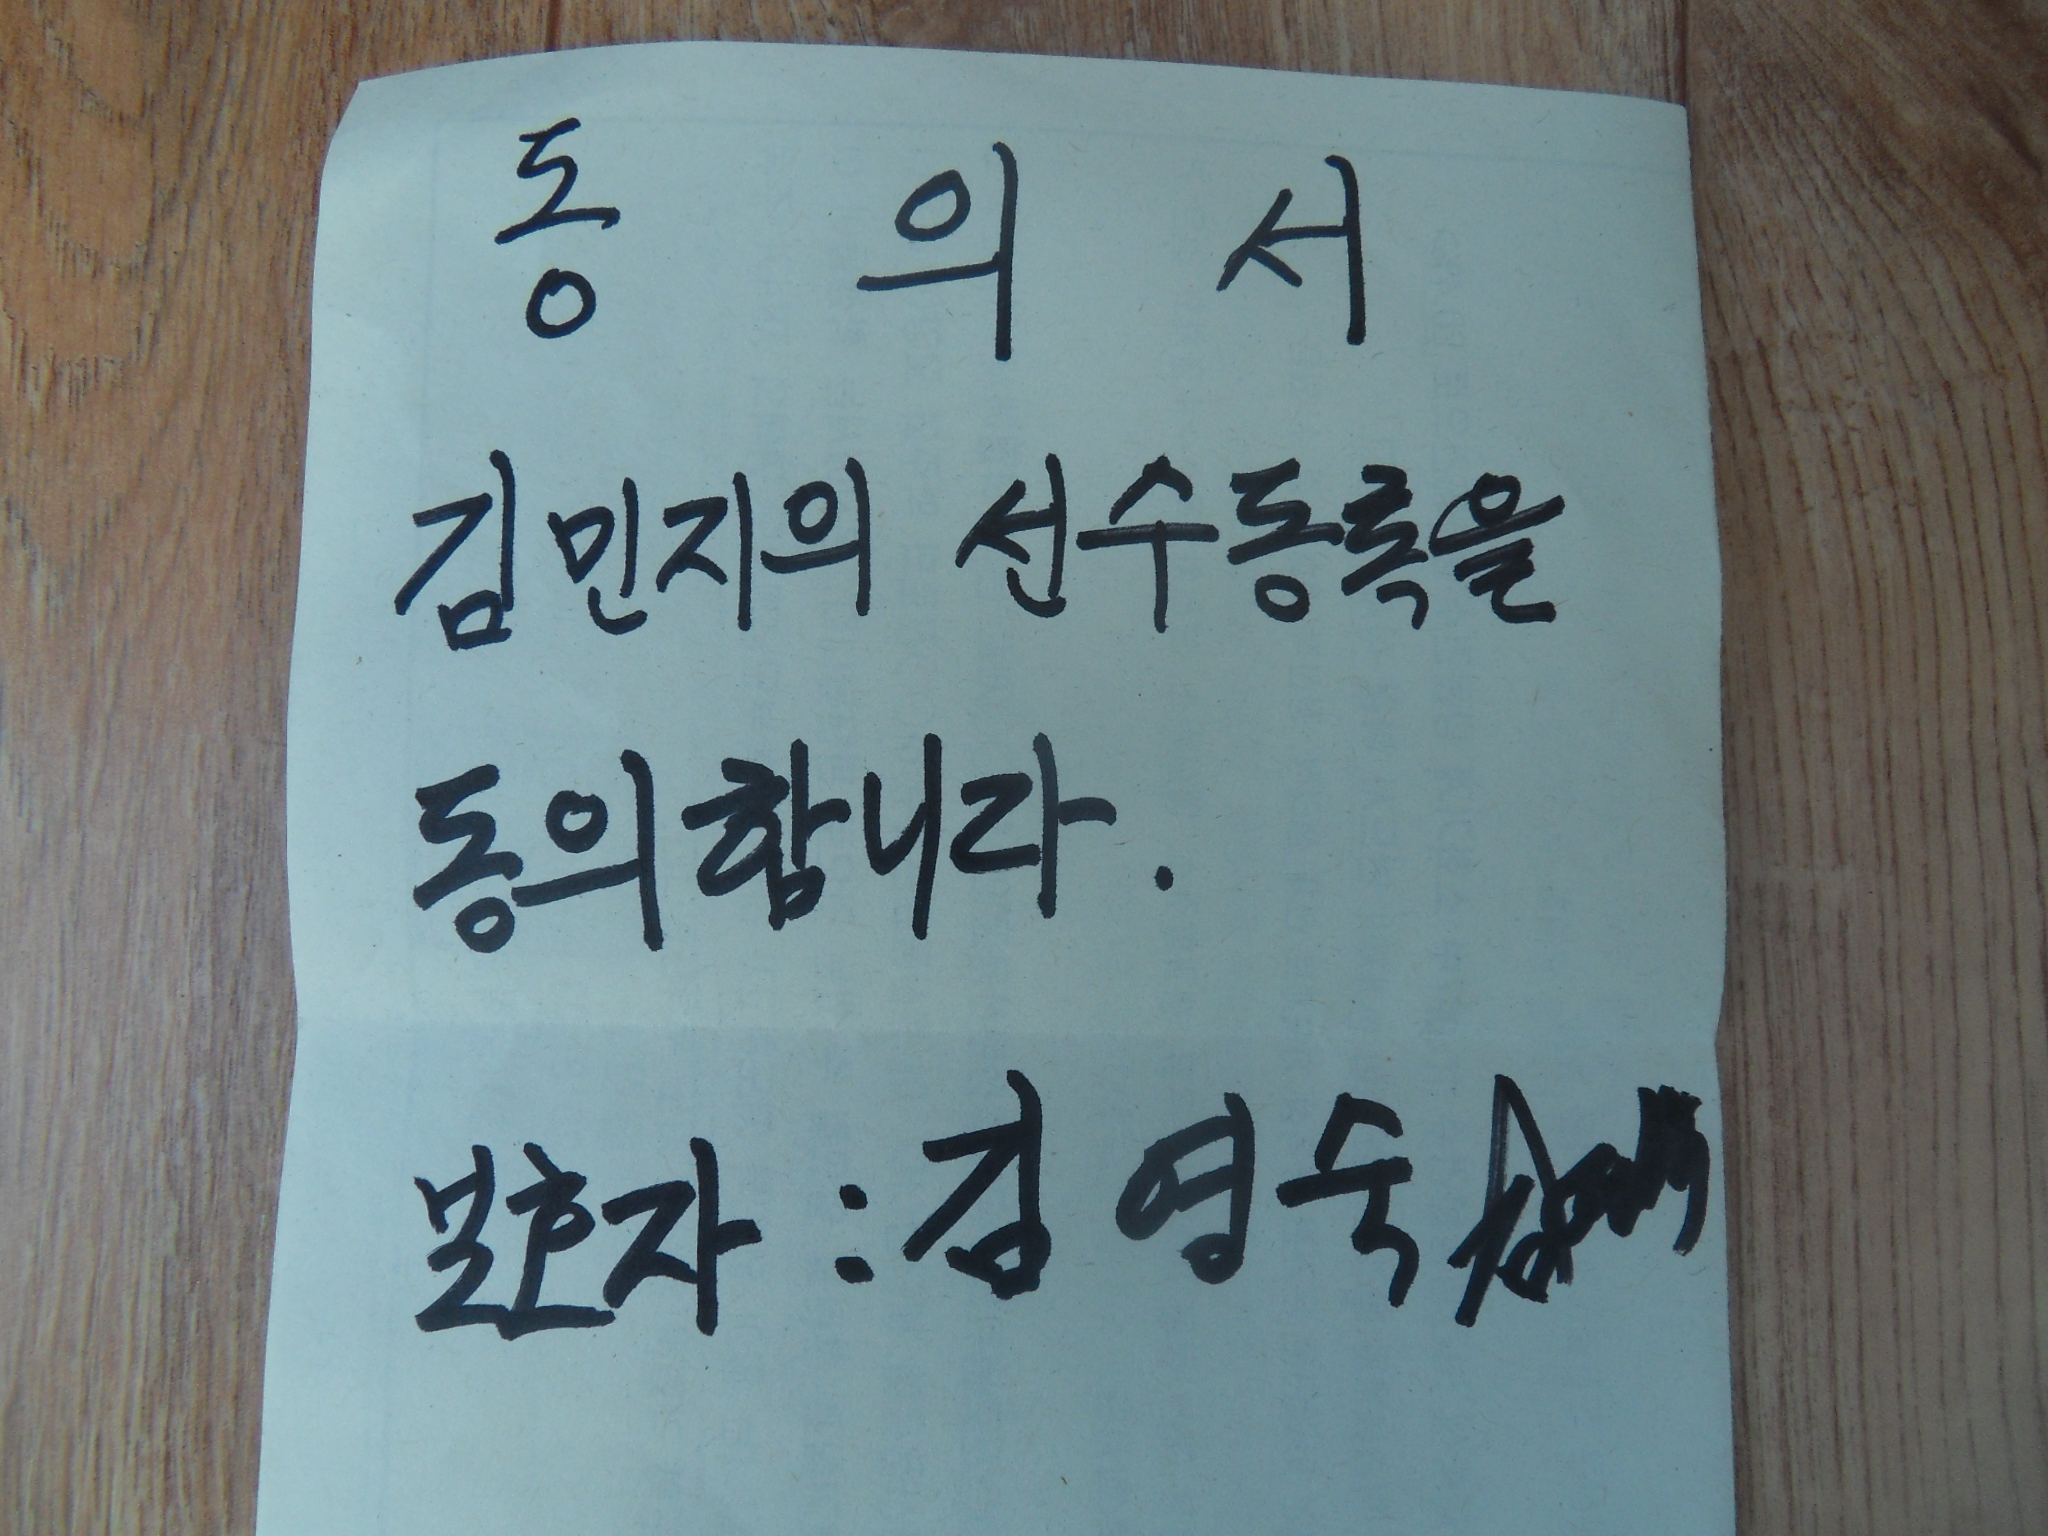 동 의 서
김민지의 선수등록을
동의합니다.
보호자 : 김 영 숙